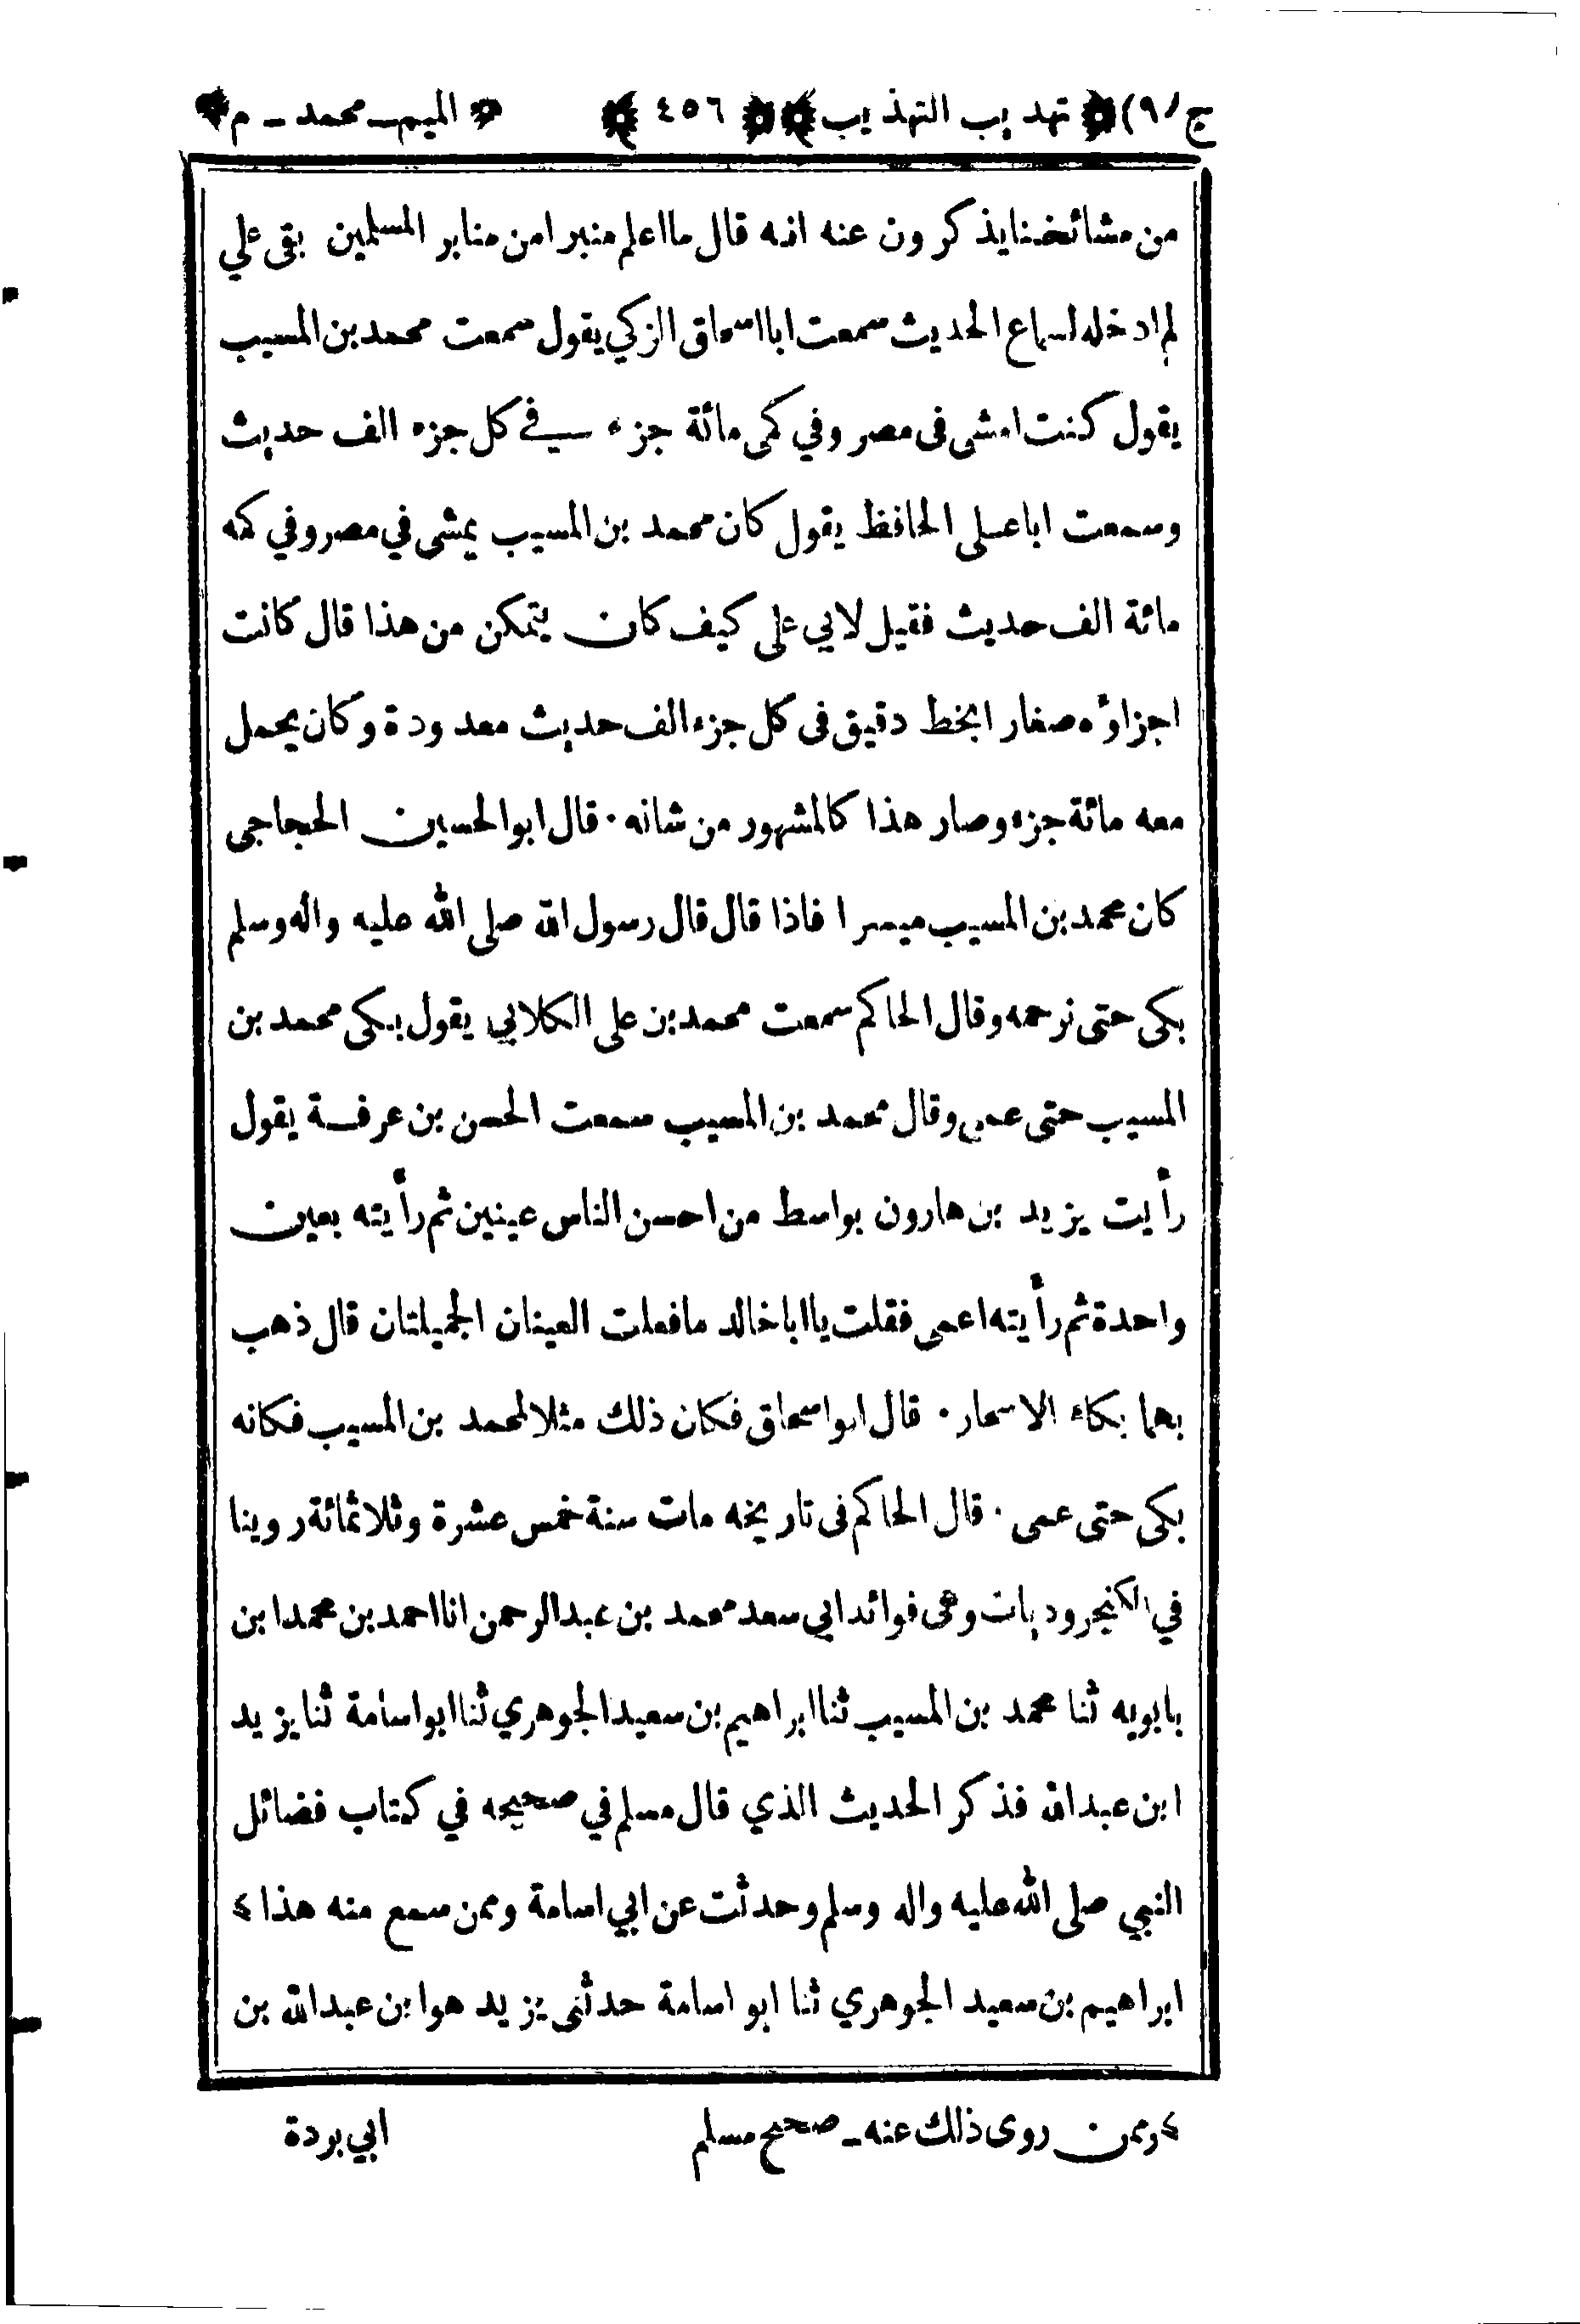 ج/٩) تهذيب التهذيب ﴿ ٤٥٦ ﴾ الميم ـ محمد ـ م
من مشائخنا يذكرون عنه انه قال ما اعلم منبرا من منابر المسلمين بقى علي
لم ادخله لسماع الحديث سمعت ابا اسحاق الزكي يقول سمعت محمد بن المسيب
يقول كنت امشى فى مصر وفي كمى مائة جزء في كل جزء الف حديث
وسمعت ابا على الحافظ يقول كان محمد بن المسيب يمشى في مصر وفي كمه
مائة الف حديث فقيل لابي على كيف كان يتمكن من هذا قال كانت
اجزاؤه صغار ابخط دقيق فى كل جزء الف حديث معدودة وكان يحمل
معه مائة جزء وصار هذا كالمشهور من شانه · قال ابو الحسين الحجاجى
كان محمد بن المسيب ميسرا فاذا قال قال رسول الله صلى الله عليه واله وسلم
بكى حتى نرحمه وقال الحاكم سمعت محمد بن على الكلابي يقول بكى محمد بن
المسيب حتى عمى وقال محمد بن المسيب سمعت الحسن بن عرفة يقول
رأيت يزيد بن هارون بواسط من احسن الناس عينين ثم رأيته بعين
واحدة ثم رأيته اعمى فقلت يا ابا خالد ما فعلت العينان الجميلتان قال ذهب
بهما بكاء الاسحار · قال ابو اسحاق فكان ذلك مثلا لمحمد بن المسيب فكانه
بكى حتى عمى · قال الحاكم فى تاريخه مات سنة خمس عشرة وثلاثمائة روينا
في الكنجروديات وهى فوائد ابي سعد محمد بن عبد الرحمن انا احمد بن محمد ابن
بابويه ثنا محمد بن المسيب ثنا ابراهيم بن سعيد الجوهري ثنا ابو اسامة ثنا يزيد
ابن عبد الله فذكر الحديث الذي قال مسلم في صحيحه في كتاب فضائل
النبي صلى الله عليه واله وسلم وحدثت عن ابي اسامة وممن سمع منه هذا ٤
ابراهيم بن سعيد الجوهري ثنا ابو اسامة حدثنى يزيد هو ابن عبد الله بن
٤ وممن روى ذلك عنه ـ صحيح مسلم
ابي بردة